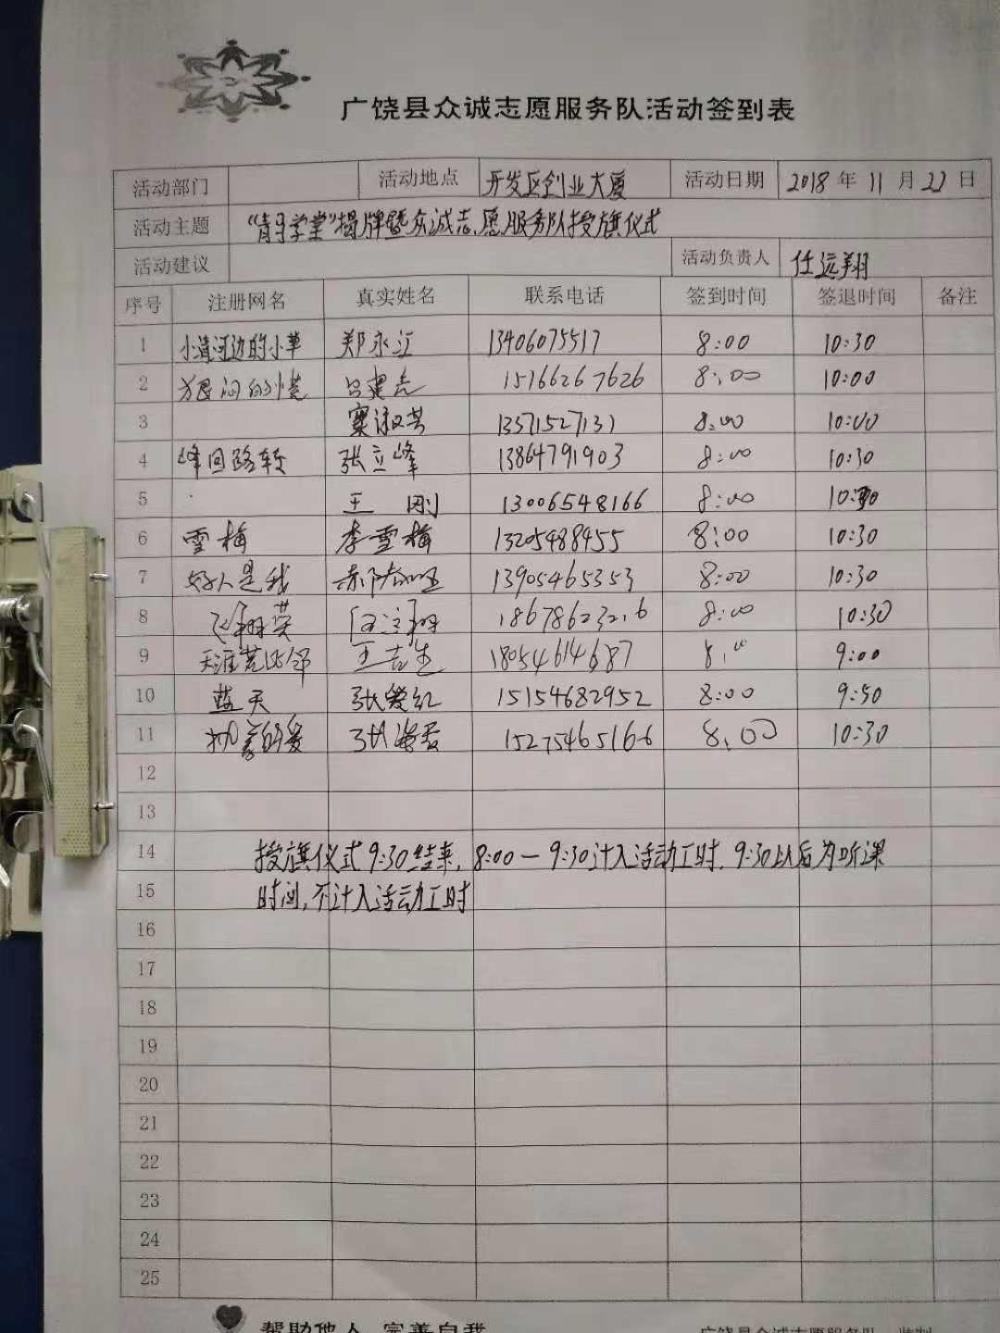 广饶县众诚志愿服务队活动签到表
活动部门 活动地点 开发区创业大厦 活动日期 2018年11月27日
活动主题 学堂"揭牌暨众诚志愿服务队授旗仪式
活动建议 活动负责人 任远翔
序号 注册网名 真实姓名 联系电话 签到时间 签退时间 备注
1 小清河边的小草 郑永江 13406075517 8:00 10:30
2 吕建志 15166267626 8:00 10:00
3 窦淑芸 13371527131 8:00 10:00
4 峰回路转 张立峰 13864791903 8:00 10:30
5 王刚 13006548166 8:00
6 雪梅 李雪梅 13205488455 8:00 10:30
7 好人是我 13905465353 8:00 10:30
8 8:00 10:30
9 18054614687 8:00 9:00
10 蓝天 张爱红 15154682952 8:00 9:50
11 张海香 15275465166 8:00 10:30
12
13
14 授旗仪式9:30结束,8:00-9:30计入活动工时.9:30以后为听课
15 时间,不计入活动工时
16
17
18
19
20
21
22
23
24
25
帮助他人 完善自我
广饶县众诚志愿服务队 监制